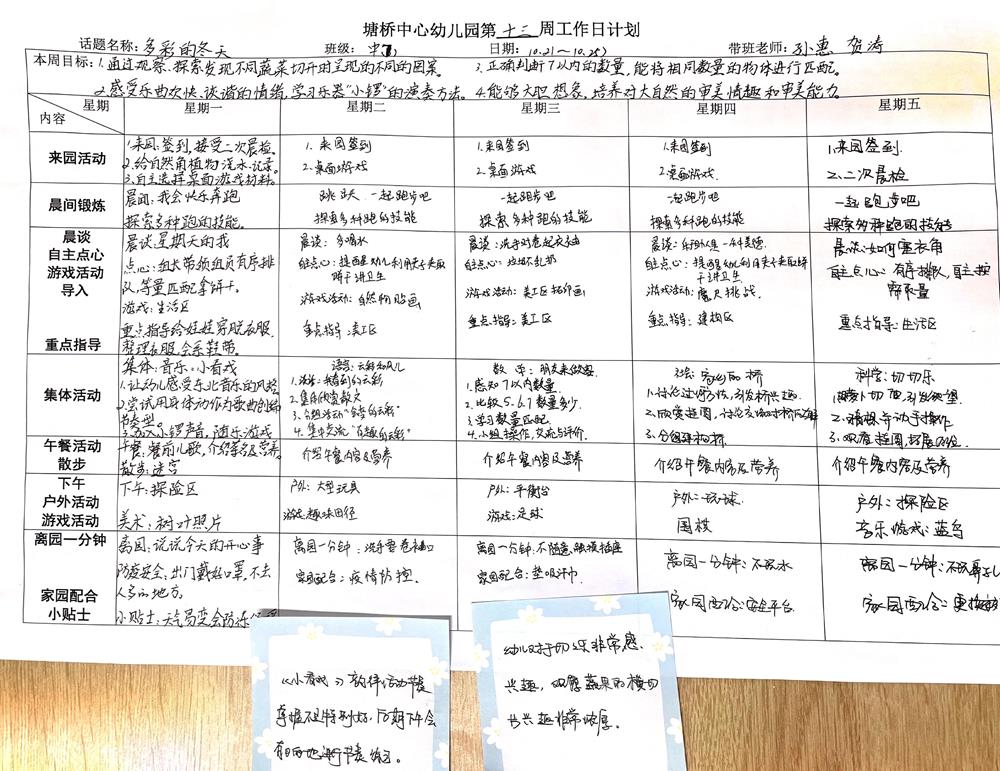 塘桥中心幼儿园第十三周工作日计划
话题名称：多彩的冬天 班级：中 日期：10.21～10.25 带班老师：孙惠 贺涛
本周目标：1.通过观察、探索发现不同蔬菜切开时呈现的不同的图案。 3.正确判断7以内的数量，能将相同数量的物体进行匹配。
2.感受乐曲欢快、诙谐的情绪，学习乐器“小锣”的演奏方法。 4.能够大胆想象，培养对大自然的审美情趣和审美能力。
星期 内容 星期一 星期二 星期三 星期四 星期五
来园活动
1.来园：签到，接受二次晨检。
2.给自然角植物浇水、记录。
3.自主选择桌面游戏材料。
1.来园签到
2.桌面游戏
1.来园签到
2.桌面游戏
1.来园签到
2.桌面游戏.
1.来园签到.
2.二次晨检
晨间锻炼
晨间：我会快乐奔跑
探索多种跑的技能。
一起跑步吧
探索多种跑的技能
一起跑步吧
探索多种跑的技能
一起跑步吧
探索多种跑的技能
一起跑步吧
探索多种跑的技能
晨谈
自主点心
游戏活动
导入
重点指导
晨谈：星期天的我
点心：组长带领组员有序排
队，等量匹配拿饼干。
游戏：生活区
重点指导给娃娃穿脱衣服，
整理衣服，会系鞋带。
晨谈：多喝水
自主点心：提醒幼儿利用夹子夹取
饼干讲卫生
游戏活动：自然物贴画
重点指导：美工区
晨谈：洗手时卷起衣袖
自主点心：垃圾不乱扔
游戏活动：美工区拓印画
重点指导：美工区
晨谈：乐于助人是一种美德
自主点心：提醒幼儿利用夹子夹取饼
干讲卫生
游戏活动：魔尺挑战.
重点指导：建构区
晨谈：如何塞衣角
自主点心：有序排队，自主按
需取量
重点指导：生活区
集体活动
集体：音乐：小看戏
1.让幼儿感受东北音乐的风格
2.尝试用身体动作为歌曲创编
节奏型
3.加入小锣声音，随乐游戏
语言：云彩和风儿
2.集体欣赏散文
3.分组活动“奇异的云彩”
4.集中交流“有趣的云彩”
数学：朋友来做客
1.感知7以内数量
2.比较5.6.7数量多少.
3.学习数量匹配.
4.小组操作，交流与评价.
社会：家乡的桥
2.欣赏挂图，讨论交流对桥的了解
3.分组建构桥
科学：切切乐
2.猜想并动手操作
午餐活动
散步
午餐：餐前儿歌，介绍菜名及营养。
散步：迷宫
介绍午餐内容及营养
介绍午餐内容及营养
介绍午餐内容及营养
介绍午餐内容及营养
下午
户外活动
游戏活动
下午：探险区
美术：树叶照片
户外：大型玩具
游戏：趣味田径
户外：平衡台
游戏：足球
户外：玩球.
围棋
户外：探险区
音乐游戏：蓝鸟
离园一分钟
家园配合
小贴士
离园：说说今天的开心事
防疫安全：出门戴好口罩，不去
人多的地方。
小贴士：天气多变会防冻
离园一分钟：洗手要卷袖口
家园配合：疫情防控.
离园一分钟：不随意触摸插座
家园配合：垫吸汗巾
离园一分钟：不玩水
家园配合：安全平台
离园一分钟：
家园配合：
《小看戏》韵律活动节奏
掌握不是特别好，后期下午会
有目的地进行节奏练习。
幼儿对于切切乐非常感
兴趣，观察蔬果的横切
面兴趣非常浓厚。